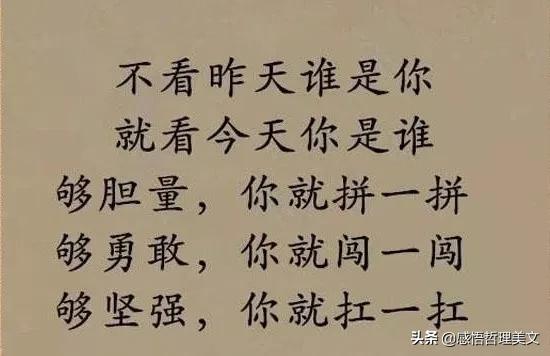 不看昨天谁是你
就看今天你是谁
够胆量，你就拼一拼
够勇敢，你就闯一闯
够坚强，你就扛一扛
头条 @感悟哲理美文